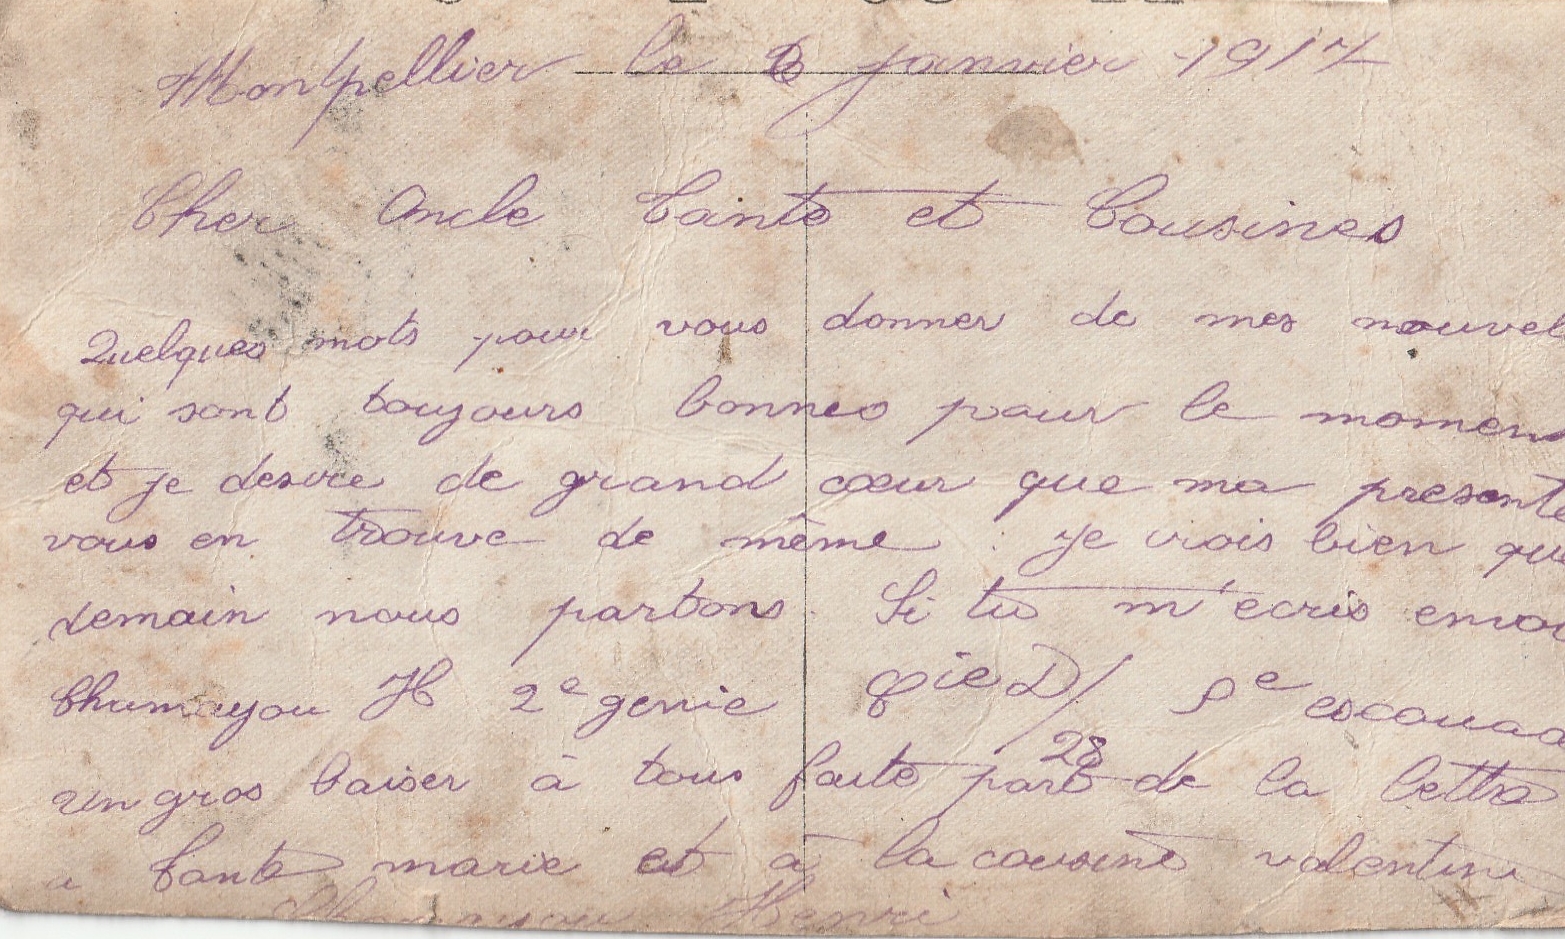 Montpellier le janvier 1917
Cher Oncle Tante et Cousines
Quelques mots pour vous donner de mes nouvel
qui sont toujours bonnes pour le momen
et je desire de grand cœur que ma presente
vous en trouve de même. je crois bien que
demain nous partons. Si tu m'ecris envoi
Chumayou H 2e genie Cie D/28 escouad
un gros baiser à tous faite part de la lettre
a tante marie et à la cousine valentine
Chumayou Henri